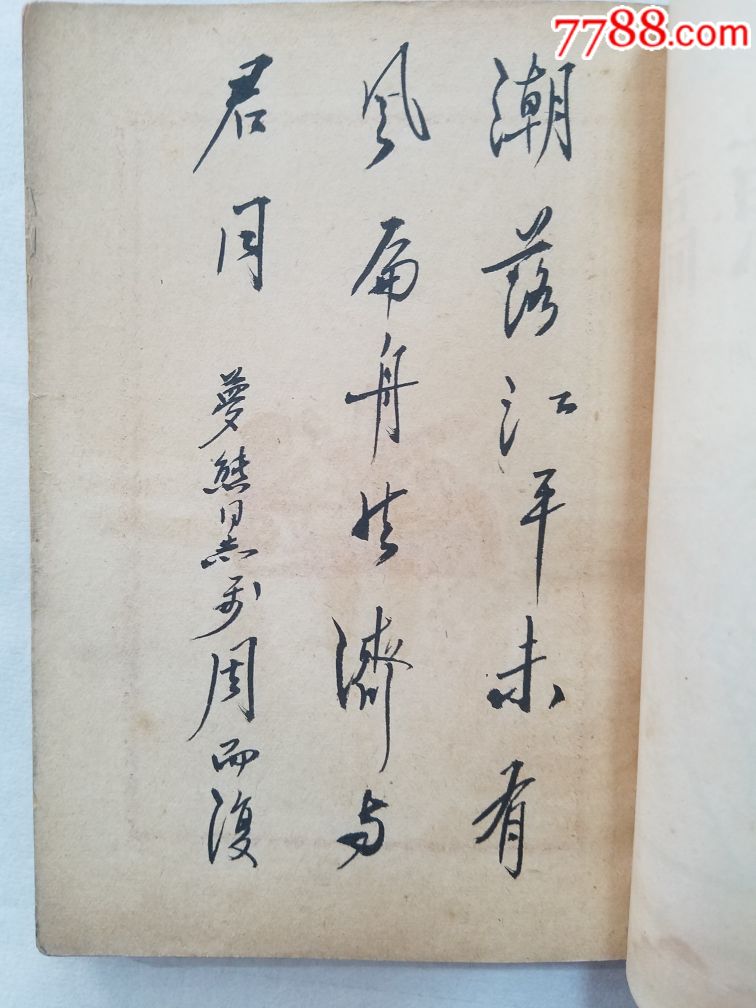 7788.com
潮落江平未有
风扁舟共濟与
君同
夢熊同志属
周而復